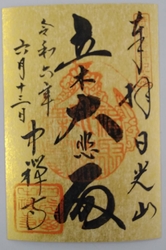 奉拝 日光山
立木大悲殿
中禅寺
令和六年
六月十三日